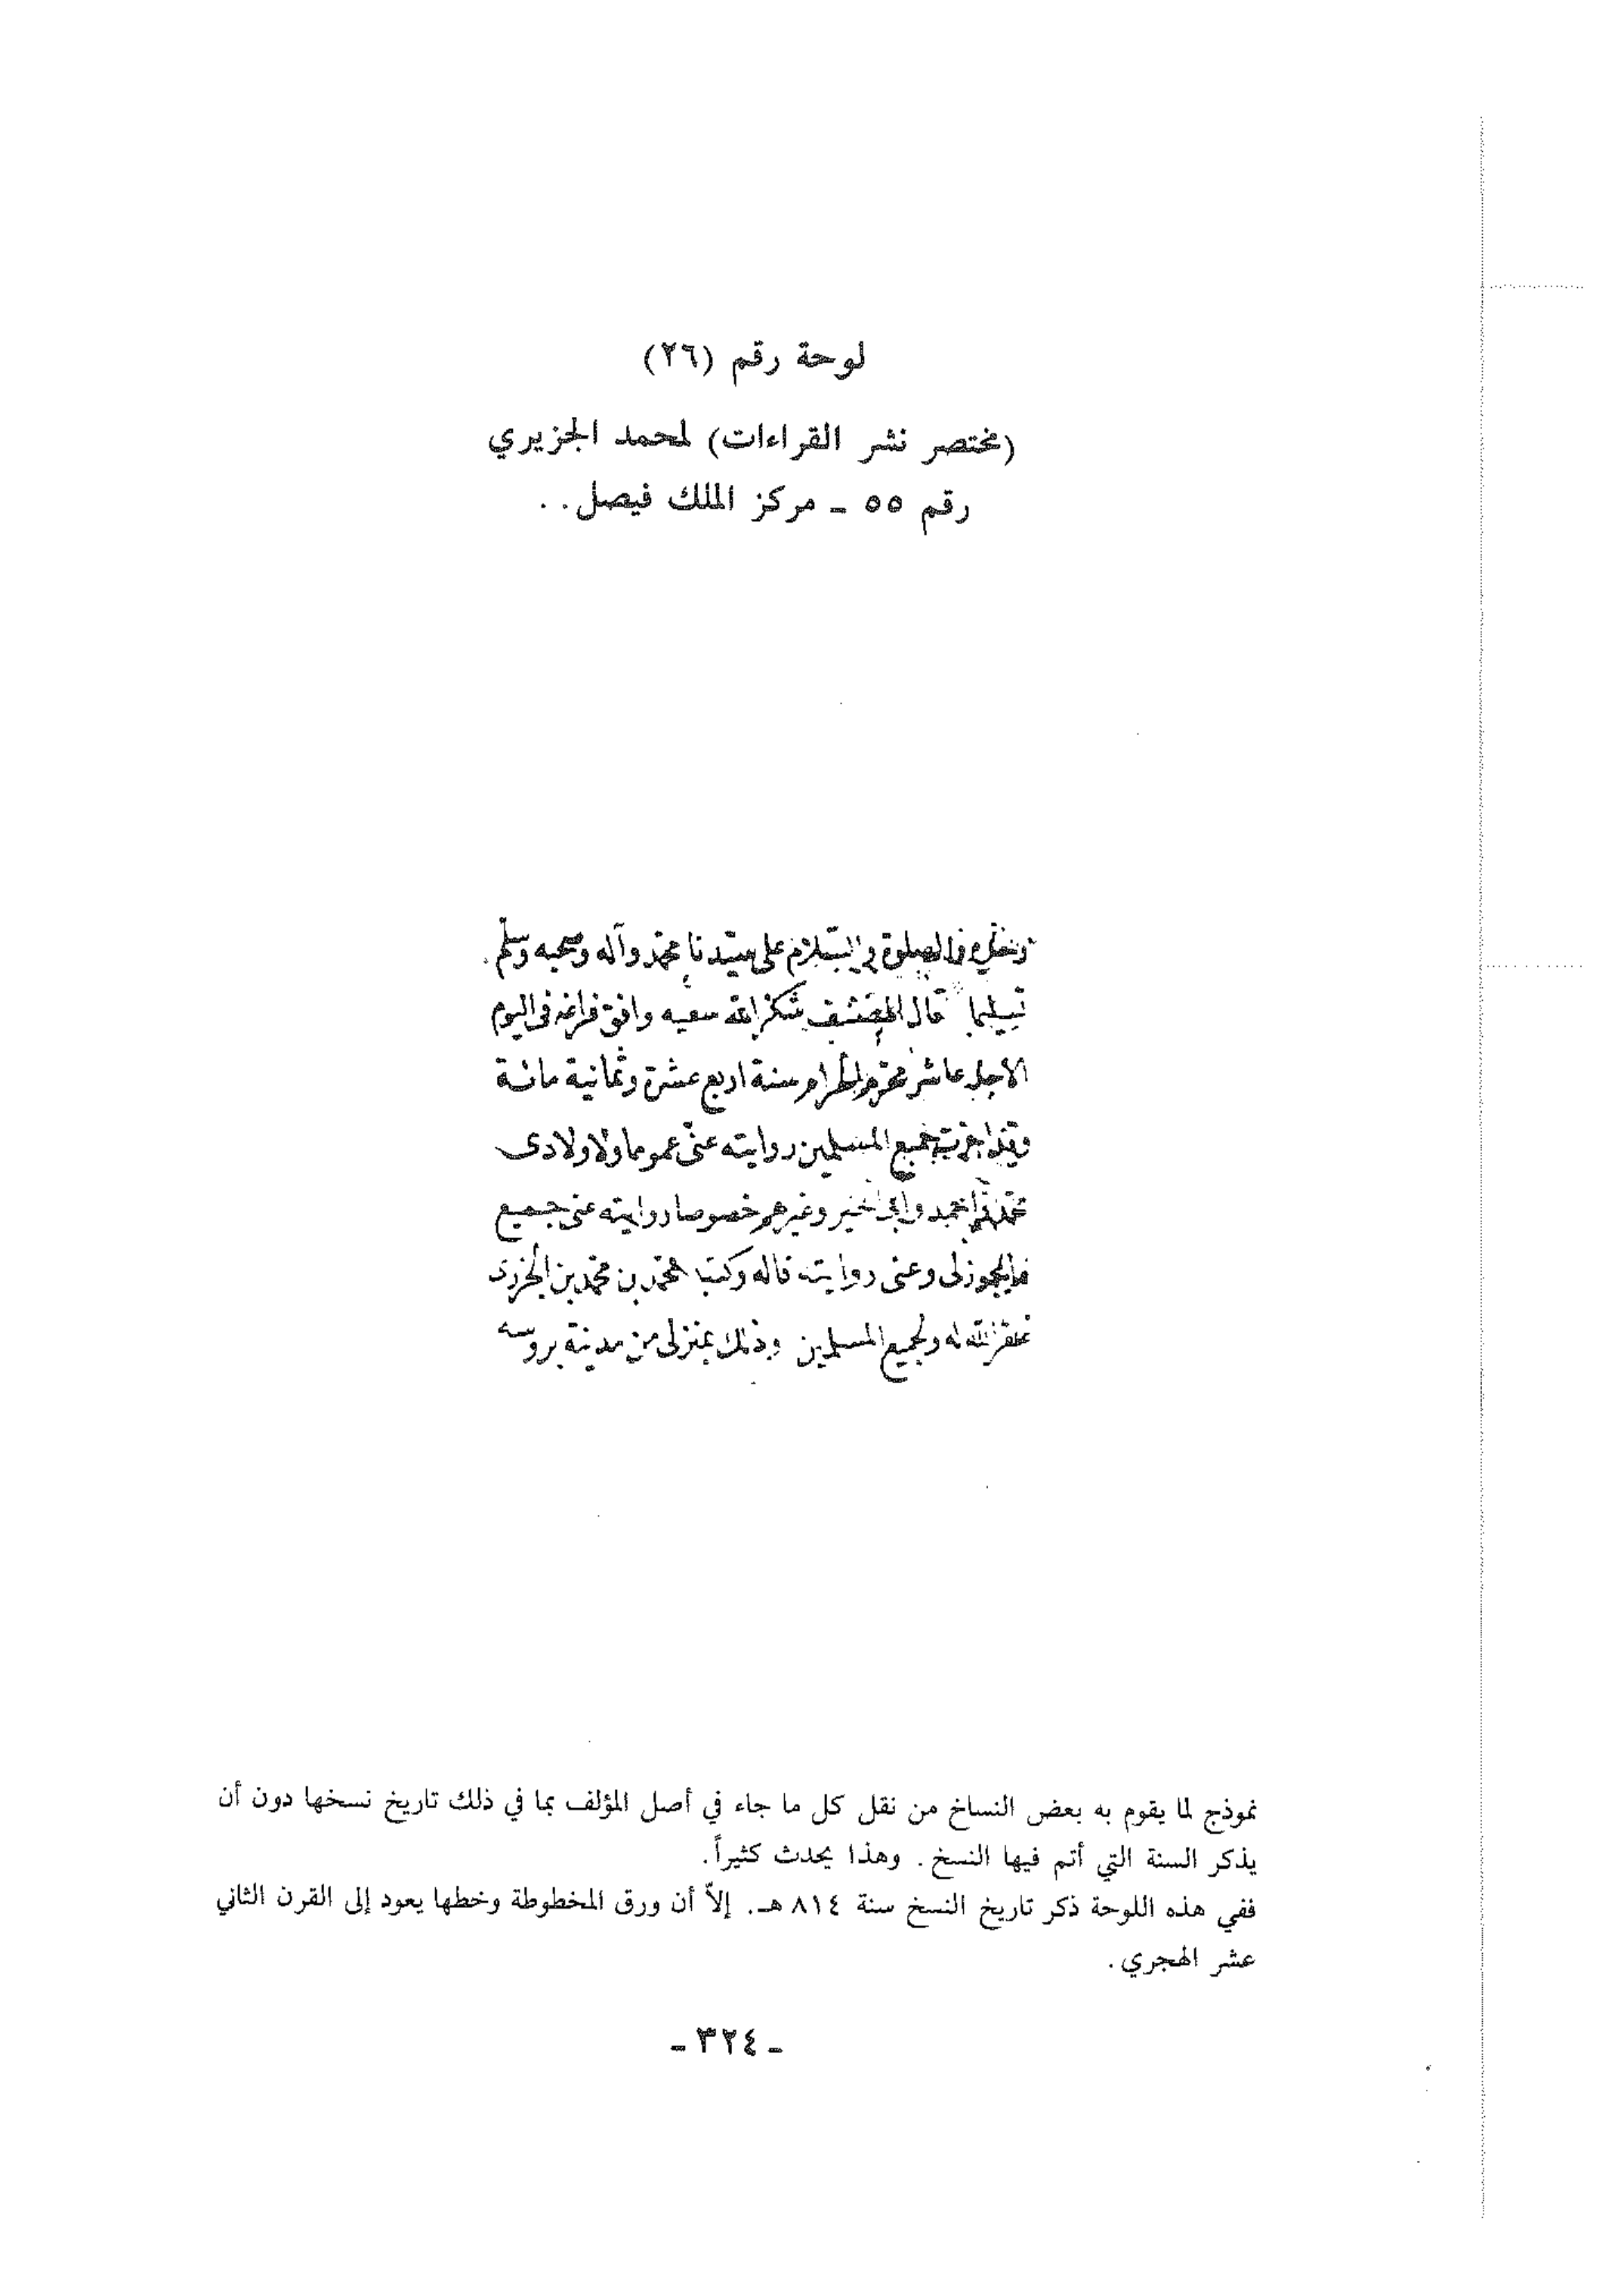 لوحة رقم (٢٦)
(مختصر نشر القراءات) لمحمد الجزيري
رقم ٥٥ ـ مركز الملك فيصل . .
والصلوة والسّلام على سيّدنا محمّد وآله وصحبه وسلّم
تسليما قال المصنف شكر الله سعيه وافق فراغه فى اليوم
عاشر محرّم الحرام سنة اربع عشرة وثمانية مائة
وقد اجزت جميع المسلمين روايته عنّى عموما ولاولادى
احمد وابى الخير وغيرهم خصوصا روايته عنى جميع
ما يجوز لى وعنى روايته قاله وكتبه محمّد بن محمّد بن الجزرى
غفر الله له ولجميع المسلمين وذلك بمنزلى من مدينة بروسه
نموذج لما يقوم به بعض النساخ من نقل كل ما جاء في أصل المؤلف بما في ذلك تاريخ نسخها دون أن
يذكر السنة التي أتم فيها النسخ . وهذا يحدث كثيراً .
ففي هذه اللوحة ذكر تاريخ النسخ سنة ٨١٤ هـ. إلاّ أن ورق المخطوطة وخطها يعود إلى القرن الثاني
عشر الهجري .
ـ ٣٢٤ ـ